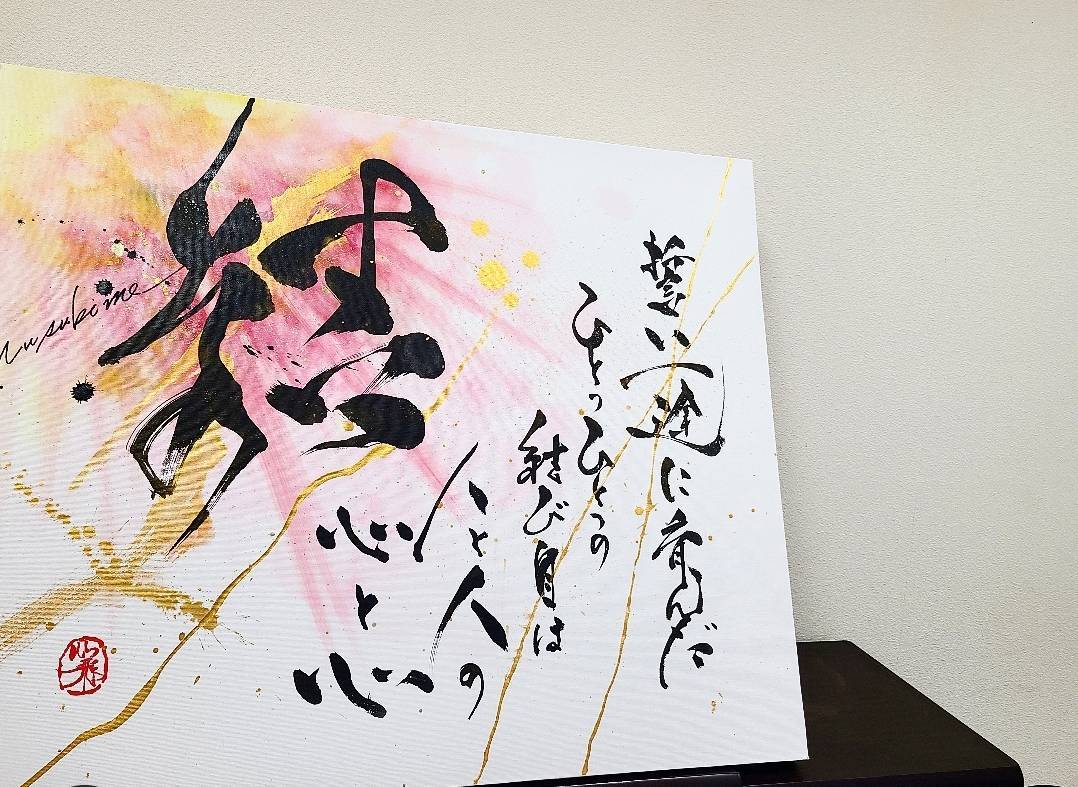 誓い一途に育んだ
ひとつひとつの
結び目は
人と人の
心と心
結
usubime